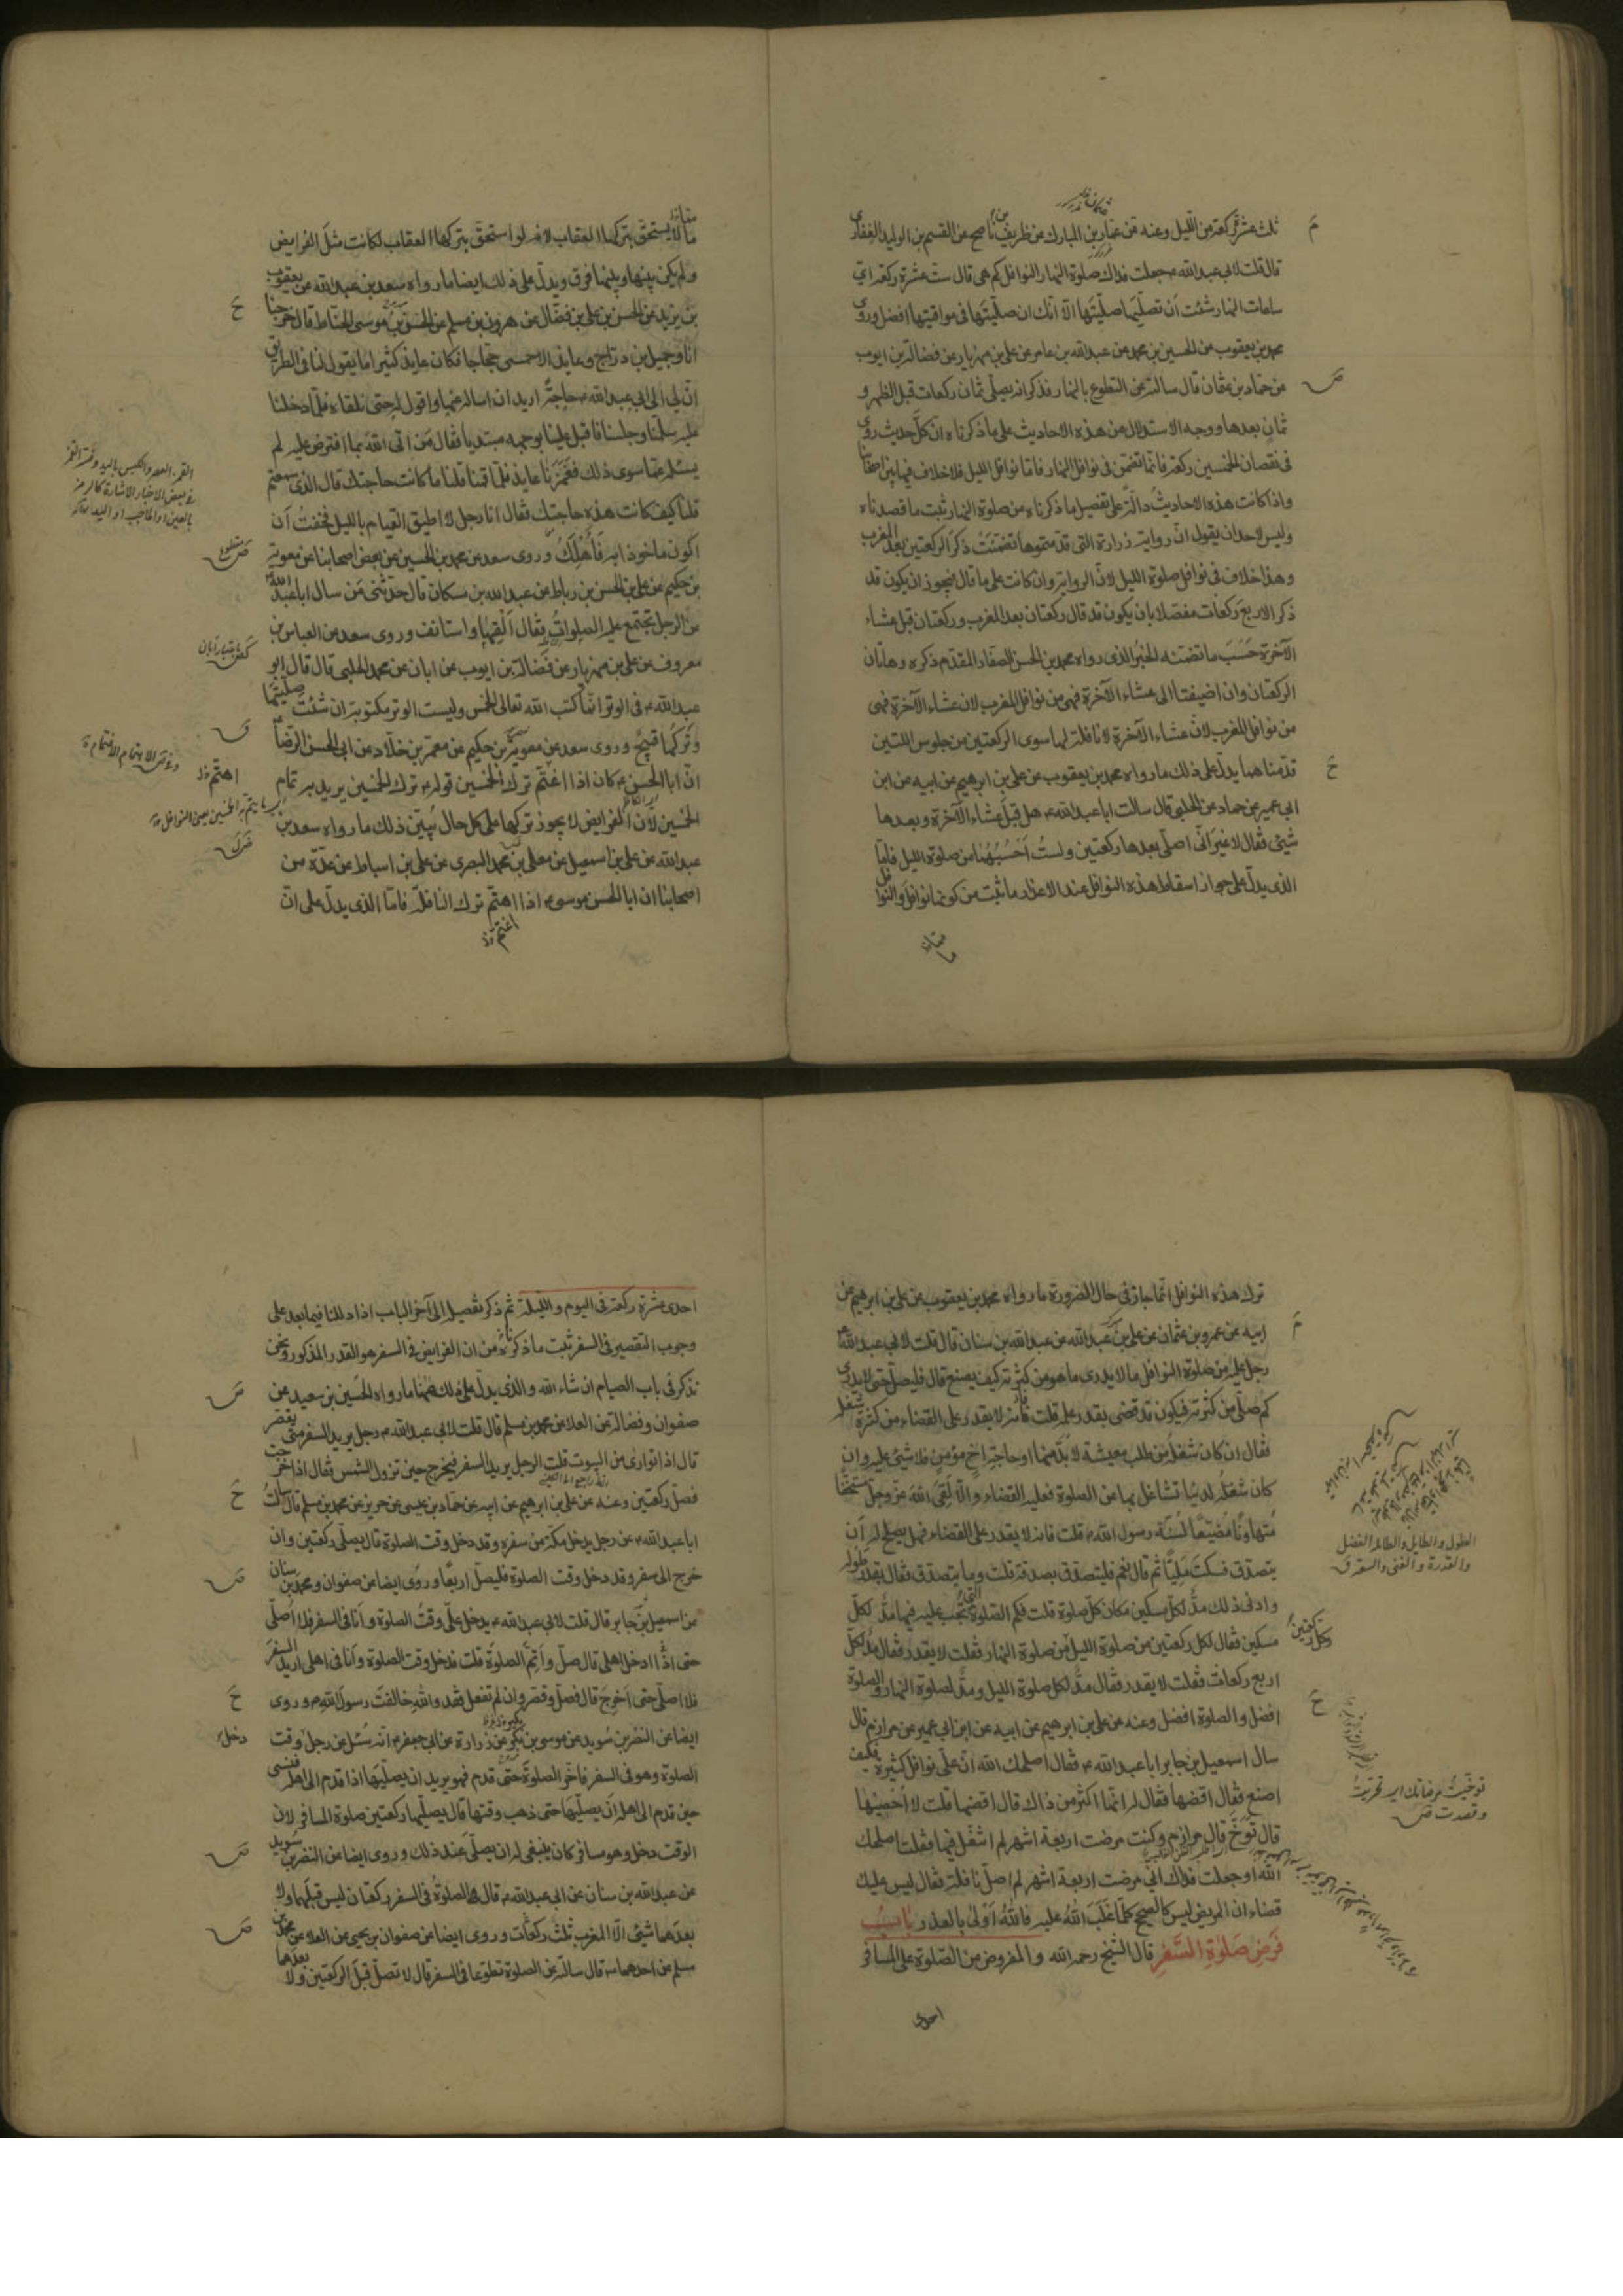 ثلث عشرة ركعة من الليل وعنه عن عمار بن المبارك عن ظريف بن ناصح عن القسم بن الوليد الغفارى
قال قلت لابى عبدالله ع جعلت فداك صلوة النهار النوافل كم هى قال ست عشرة ركعة اى
ساعات النهار شئت ان تصليها صليتها الا انك ان صليتها فى مواقيتها افضل وروى
محمد بن يعقوب عن الحسين بن محمد عن عبدالله بن عامر عن على بن مهزيار عن فضالة بن ايوب
عن حماد بن عثمان قال سالته عن التطوع بالنهار فذكر انه يصلى ثمان ركعات قبل الظهر و
ثمان بعدها ووجه الاستدلال من هذه الاحاديث على ما ذكرناه ان كل حديث روى
فى نقصان الخمسين ركعة فانما تضمن فى نوافل النهار فاما نوافل الليل فلا خلاف فيها بين اصحابنا
واذا كانت هذه الاحاديث دالة على تفصيل ما ذكرناه من صلوة النهار ثبت ما قصدناه
وليس لاحد ان يقول ان رواية زرارة التى قدمتموها تضمنت ذكر الركعتين بعد المغرب
وهذا خلاف فى نوافل صلوة الليل لان الرواية وان كانت على ما قال فيجوز ان يكون قد
ذكر الاربع ركعات مفصلا بان يكون قد قال ركعتان بعد المغرب وركعتان قبل عشاء
الآخرة حسب ما تضمنه الخبر الذى رواه محمد بن الحسن الصفار المقدم ذكره وهاتان
الركعتان وان اضيفتا الى عشاء الآخرة فهى من نوافل المغرب لان عشاء الآخرة فهى
من نوافل المغرب لان عشاء الآخرة لا نافلة لها سوى الركعتين من جلوس اللتين
قدمناهما يدل على ذلك ما رواه محمد بن يعقوب عن على بن ابرهيم عن ابيه عن ابن
ابى عمير عن حماد عن الحلبى قال سالت اباعبدالله ع هل قبل عشاء الآخرة وبعدها
شيئ فقال لا غير انى اصلى بعدها ركعتين ولست احسبهما من صلوة الليل فاما
الذى يدل على جواز اسقاط هذه النوافل عند الاعذار ما ثبت من كونها نوافل والنوافل
ما لا يستحق بتركها العقاب لانه لو استحق بتركها العقاب لكانت مثل الفرايض
ولم يكن بينها وبينها فرق ويدل على ذلك ايضا ما رواه سعد بن عبدالله عن يعقوب
بن يزيد عن الحسن بن على بن فضال عن هرون بن مسلم عن الحسن بن موسى الحناط قال خرجنا
انا وجميل بن دراج وعايذ الاحمسى حجاجا فكان عايذ كثيرا ما يقول لنا فى الطريق
ان لى الى ابى عبدالله ع حاجة اريد ان اساله عنها واقول له حتى نلقاه فلما دخلنا
عليه سلمنا وجلسنا فاقبل علينا بوجهه مبتديا فقال من اتى الله بما افترض عليه لم
يسئله عما سوى ذلك فغمزنا عايذ فلما قمنا قلنا ما كانت حاجتك قال الذى سمعتم
قلنا كيف كانت هذه حاجتك فقال انا رجل لا اطيق القيام بالليل فخفت ان
اكون ماخوذا به فأهلك وروى سعد عن محمد بن الحسين عن بعض اصحابنا عن معوية
بن حكيم عن على بن الحسن بن رباط عن عبدالله بن مسكان قال حدثنى من سال ابا عبدالله
عن الرجل تجتمع عليه الصلوات فقال القها واستانف وروى سعد عن العباس بن
معروف عن على بن مهزيار عن فضالة بن ايوب عن ابان عن محمد الحلبى قال قال ابو
عبدالله ع فى الوتر انما كتب الله تعالى الخمس وليست الوتر مكتوبة ان شئت صليتها
وتركها قبيح وروى سعد عن معوية بن حكيم عن معمر بن خلاد عن ابى الحسن الرضا
ان ابا الحسن ع كان اذا اغتم ترك الخمسين قوله ع ترك الخمسين يريد به تمام
الخمسين لان الفرايض لا يجوز تركها على كل حال يبين ذلك ما رواه سعد بن
عبدالله عن على بن اسمعيل عن معلى بن محمد البصرى عن على بن اسباط عن عدة من
اصحابنا ان ابا الحسن موسى ع اذا اهتم ترك النافلة فاما الذى يدل على ان
اغتم
ترك هذه النوافل انما جاز فى حال الضرورة ما رواه محمد بن يعقوب عن على بن ابرهيم عن
ابيه عن عمرو بن عثمان عن على بن عبدالله عن عبدالله بن سنان قال قلت لابى عبدالله
رجل عليه من صلوة النوافل ما لا يدرى ما هو من كثرته كيف يصنع قال فليصل حتى لا يدرى
كم صلى من كثرته فيكون قد قضى بقدر علمه قلت فانه لا يقدر على القضاء من كثرة شغله
فقال ان كان شغله من طلب معيشة لا بد منها او حاجة اخ مؤمن فلا شيئ عليه وان
كان شغله لدنيا تشاغل بها عن الصلوة فعليه القضاء والا لقى الله عز وجل مستخفا
متهاونا مضيعا لسنة رسول الله ص قلت فانه لا يقدر على القضاء فهل يصلح له ان
يتصدق فسكت مليا ثم قال نعم فليتصدق بصدقة قلت وما يتصدق فقال بقدر طوله
وادنى ذلك مد لكل مسكين مكان كل صلوة قلت فكم الصلوة التى تجب عليه فيها مد لكل
مسكين فقال لكل ركعتين من صلوة الليل من صلوة النهار فقلت لا يقدر فقال مد لكل
وكل ركعتين
اربع ركعات فقلت لا يقدر فقال مد لكل صلوة الليل ومد لصلوة النهار والصلوة
افضل والصلوة افضل وعنه عن على بن ابرهيم عن ابيه عن ابن ابى عمير عن مرازم قال
سال اسمعيل بن جابر ابا عبدالله ع فقال اصلحك الله ان على نوافل كثيرة فكيف
اصنع فقال اقضها فقال له انها اكثر من ذاك قال اقضها قلت لا احصيها
قال توخ قال مرازم وكنت مرضت اربعة اشهر لم اتنفل فيها فقلت اصلحك
الله او جعلت فداك انى مرضت اربعة اشهر لم اصل نافلة فقال ليس عليك
قضاء ان المريض ليس كالصحيح كلما غلب الله عليه فالله اولى بالعذر باب
فرض صلوة السفر قال الشيخ رحمه الله والمفروض من الصلوة على المسافر
الطول والطايل والطايلة الفضل
والقدرة والغنى والسعة ق
توخيت مرضاتك اى تحريت
وقصدت ص
احدى عشرة ركعة فى اليوم والليلة ثم ذكر تفصيله الى آخر الباب اذا دللنا فيما بعد على
وجوب التقصير فى السفر ثبت ما ذكرناه من ان الفرايض فى السفر هو القدر المذكور ونحن
نذكر فى باب الصيام ان شاء الله والذى يدل على ذلك ههنا ما رواه الحسين بن سعيد عن
صفوان وفضالة عن العلا عن محمد بن مسلم قال قلت لابى عبدالله ع رجل يريد السفر متى يقصر
قال اذا توارى من البيوت قلت الرجل يريد السفر فيخرج حين تزول الشمس فقال اذا خرجت
فصل ركعتين وعنه عن على بن ابرهيم عن ابيه عن حماد بن عيسى عن حريز عن محمد بن مسلم قال سالت
ابا عبدالله ع عن رجل يدخل مكة من سفره وقد دخل وقت الصلوة قال يصلى ركعتين وان
خرج الى سفر وقد دخل وقت الصلوة فليصل اربعا وروى ايضا عن صفوان ومحمد بن سنان
عن اسمعيل بن جابر قال قلت لابى عبدالله ع يدخل على وقت الصلوة وانا فى السفر فلا اصلى
حتى ادخل اهلى قال صل واتم الصلوة قلت فدخل وقت الصلوة وانا فى اهلى اريد السفر
فلا اصلى حتى اخرج قال فصل وقصر وان لم تفعل فقد والله خالفت رسول الله ص وروى
ايضا عن النضر بن سويد عن موسى بن بكر عن زرارة عن ابى جعفر ع انه سئل عن رجل وقت
دخل
الصلوة وهو فى السفر فاخر الصلوة حتى قدم فهو يريد ان يصليها اذا قدم الى اهله فنسى
حين قدم الى اهله ان يصليها حتى ذهب وقتها قال يصليها ركعتين صلوة المسافر لان
الوقت دخل وهو مسافر كان ينبغى له ان يصلى عند ذلك وروى ايضا عن النضر بن سويد
عن عبدالله بن سنان عن ابى عبدالله ع قال الصلوة فى السفر ركعتان ليس قبلهما ولا
بعدهما شيئ الا المغرب ثلث ركعات وروى ايضا عن صفوان بن يحيى عن العلا عن محمد بن
مسلم عن احدهما ع قال سالته عن الصلوة تطوعا فى السفر قال لا تصل قبل الركعتين ولا بعدهما